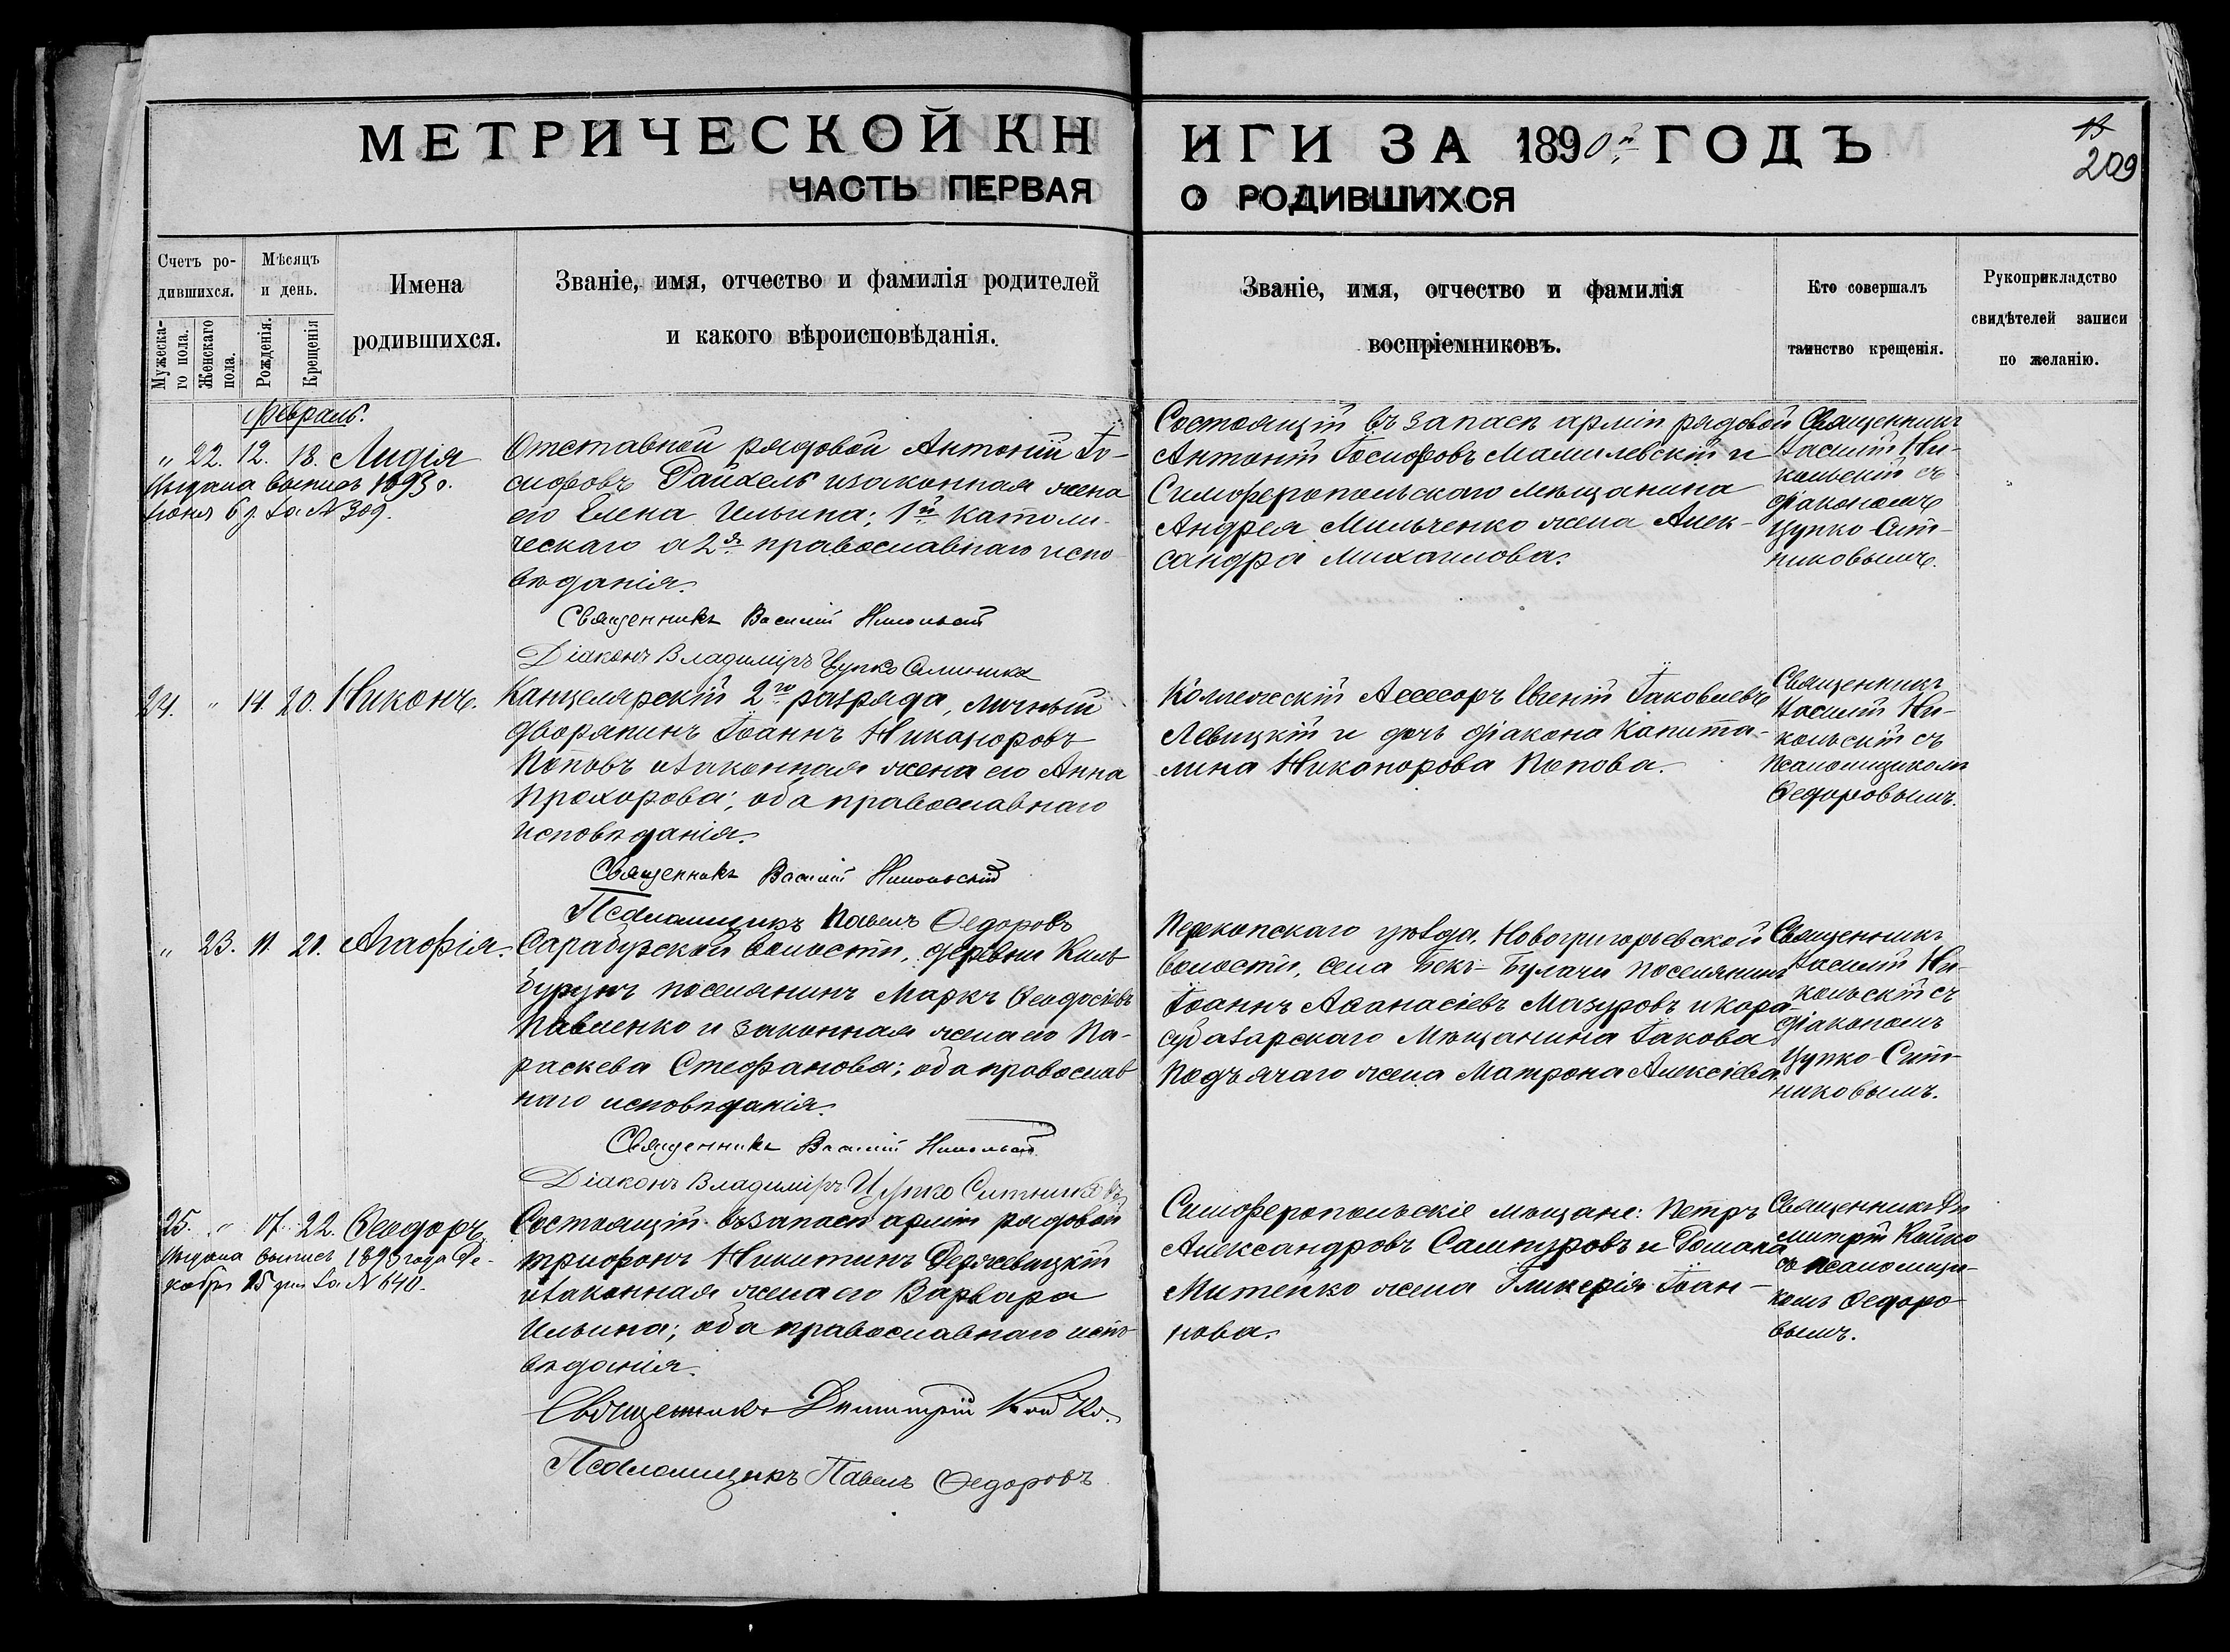 МЕТРИЧЕСКОЙ КНИГИ ЗА 1890й ГОДЪ
ЧАСТЬ ПЕРВАЯ О РОДИВШИХСЯ
209
Счетъ родившихся.
Мужеска-го пола.
Женскаго пола.
Мѣсяцъ и день.
Рожденія.
Крещенія
Имена
родившихся.
Званіе, имя, отчество и фамилія родителей
и какого вѣроисповѣданія.
Званіе, имя, отчество и фамилія
воспріемниковъ.
Кто совершалъ
таинство крещенія.
Рукоприкладство
свидѣтелей записи
по желанію.
Февраль.
„ 22. 12. 18. Лидія
Выдана выпись 1893 г.
Іюня 6 д. за № 309.
Отставной рядовой Антоній Іо-
сифовъ Райхель и законная жена
его Елена Ильина; 1й католи-
ческаго а 2я православнаго испо-
вѣданія.
Священникъ Василій Никольскій
Діаконъ Владиміръ Цупко Ситников
Состоящій въ запасѣ арміи рядовой
Антоній Іосифовъ Машлевскій и
Симферопольскаго мѣщанина
Андрея Мильченко жена Алек-
сандра Михаилова.
Священникъ
Василій Ни-
кольскій съ
діакономъ
Цупко-Сит-
никовымъ.
24. „ 14. 20. Никонъ.
Канцелярскій 2го разряда, личный
дворянинъ Іоаннъ Никаноровъ
Поповъ и законная жена его Анна
Прохорова; оба православнаго
исповѣданія.
Священникъ Василій Никольскій
Псаломщикъ Павелъ Ѳедоровъ
Коллежскій Ассесоръ Евгеній Іаковлевъ
Левицкій и дочь діакона Капито-
лина Никонорова Попова.
Священникъ
Василій Ни-
кольскій съ
псаломщикомъ
Ѳедоровымъ.
„ 23. 11. 21. Агафія.
Сарабузской волости, деревни Киль-
бурунъ поселянинъ Маркъ Ѳеодосіевъ
Павленко и законная жена его Па-
раскева Стефанова; оба православ
наго исповѣданія.
Священникъ Василій Никольскій
Діаконъ Владиміръ Цупко Ситниковъ
Перекопскаго уѣзда, Новогригорьевской
волости, села Бекъ-Булачи поселянинъ
Іоаннъ Аѳанасіевъ Мазуровъ и кара
субазарскаго мѣщанина Іакова
Подъячаго жена Матрона Алексіева.
Священникъ
Василій Ни-
кольскій съ
діакономъ
Цупко-Сит-
никовымъ.
25. „ 17. 22. Ѳеодоръ.
Выдана выпись 1893 года Де-
кабря 15 дня за № 640.
Состоящій въ запасѣ арміи рядовой
Трифонъ Никитинъ Держевицкій
и законная жена его Варвара
Ильина; оба православнаго испо-
вѣданія.
Священникъ Димитрій Койко.
Псаломщикъ Павелъ Ѳедоровъ
Симферопольскіе мѣщане: Петръ
Александровъ Сампуровъ и Романа
Митейко жена Гликерія Іоан-
нова.
Священникъ Ди
митрій Койко
съ псаломщи-
комъ Ѳедоро-
вымъ.